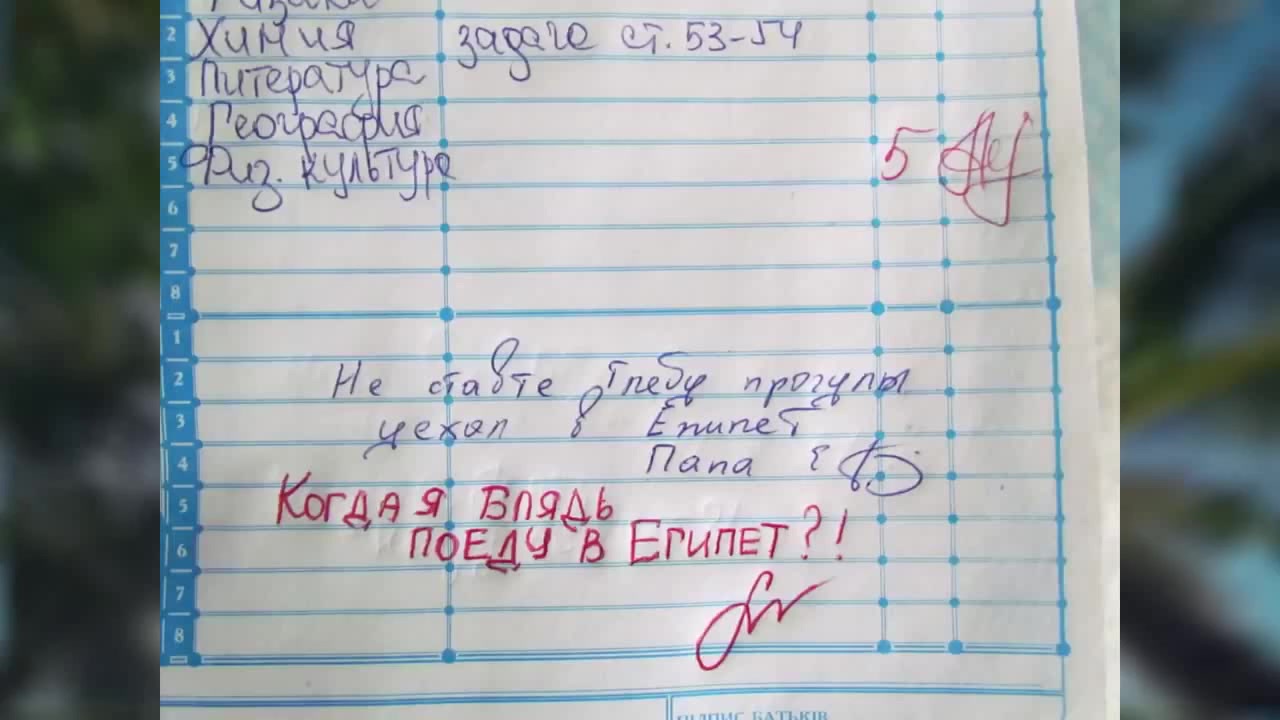 2 Химия задаче ст. 53-54
3 Литература
4 География
5 Физ. культура 5
6
7
8
1
2 Не ставте Глебу прогулы
3 уехал в Египет
4 Папа
5 Когда я блядь
6 поеду в Египет?!
7
8
ПІДПИС БАТЬКІВ